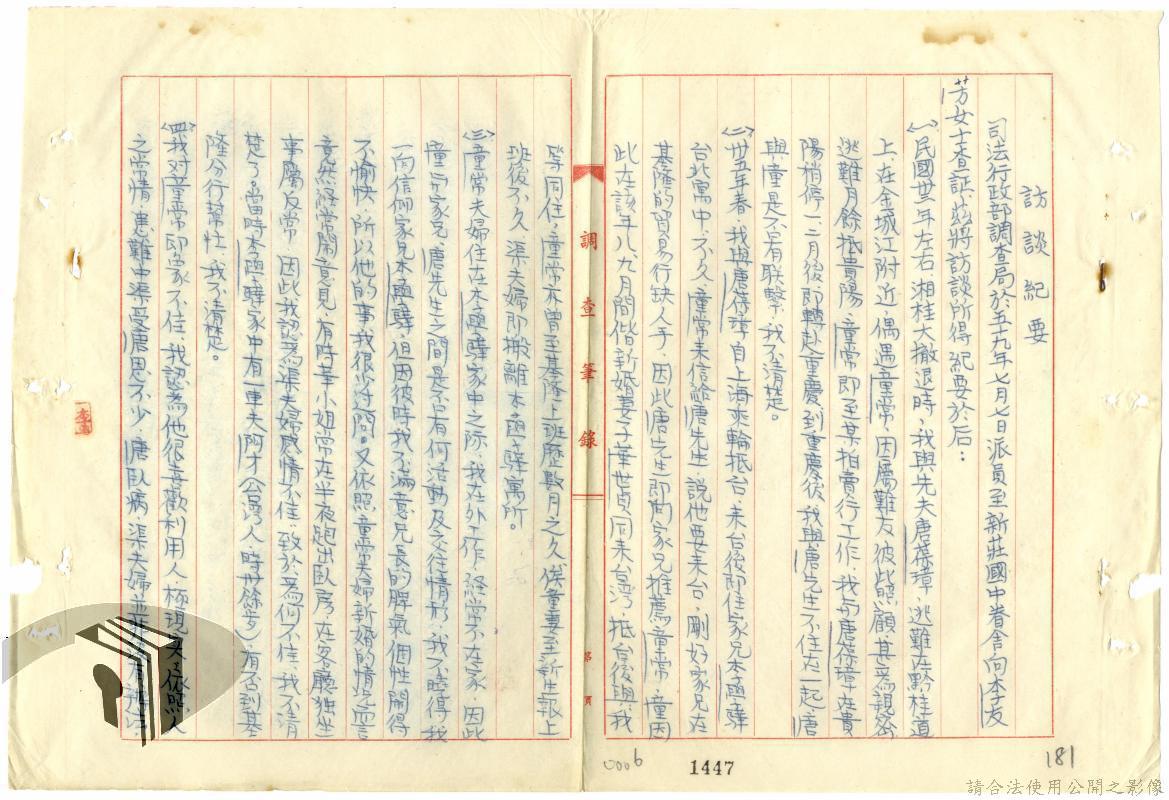 訪談紀要
司法行政部調查局於五十九年七月七日派員至新莊國中眷舍向李友
芳女士查証，茲將訪談所得紀要於后：
㈠民國卅三年左右湘桂大撤退時，我與先夫唐葆璋，逃難在黔桂道
上，在金城江附近，偶遇童常，因屬難友彼此照顧甚為親密
逃難月餘抵貴陽，童常即至某拍賣行工作，我與唐葆璋在貴
陽稍停一二月後即轉赴重慶到重慶後，我與唐先生不住在一起，唐
與童是否有聯繫，我不清楚。
㈡卅五年春，我與唐葆璋自上海乘輪抵台，來台後即住家兄李
台北寓中，不久，童常來信給唐先生，說他要來台，剛好家兄在
基隆的貿易行缺人手，因此唐先生即向家兄推薦童常，童因
此在該年八、九月間偕新婚妻子華世貞同來台灣，抵台後與我
等同住，童常亦曾至基隆上班歷數月之久俟童妻至新生報上
班後不久，渠夫婦即搬離李寓所。
㈢童常夫婦住在李家中之際，我在外工作，經常不在家，因此
童與家兄，唐先生之間是否有何活動及交往情形，我不曉得，我
一向信仰家兄李，但因彼時我不滿意兄長的脾氣個性鬧得
不愉快，所以他的事我很少過問。又依照童常夫婦新婚的情況而言
竟然經常鬧意見，有時華小姐常在半夜跑出臥房，在客廳獨坐
事屬反常，因此，我認為渠夫婦感情不佳，致於為何不佳，我不清
楚，當時李家中有一車夫阿才（台灣人時卅餘歲）有否到基
隆分行幫忙，我不清楚。
㈣我对童常印象不佳，我認為他很喜歡利用人，極現實，依照人
之常情，患難中渠受唐恩不少，唐臥病渠夫婦
調查筆錄
第 頁
0006
1447
181
請合法使用公開之影像